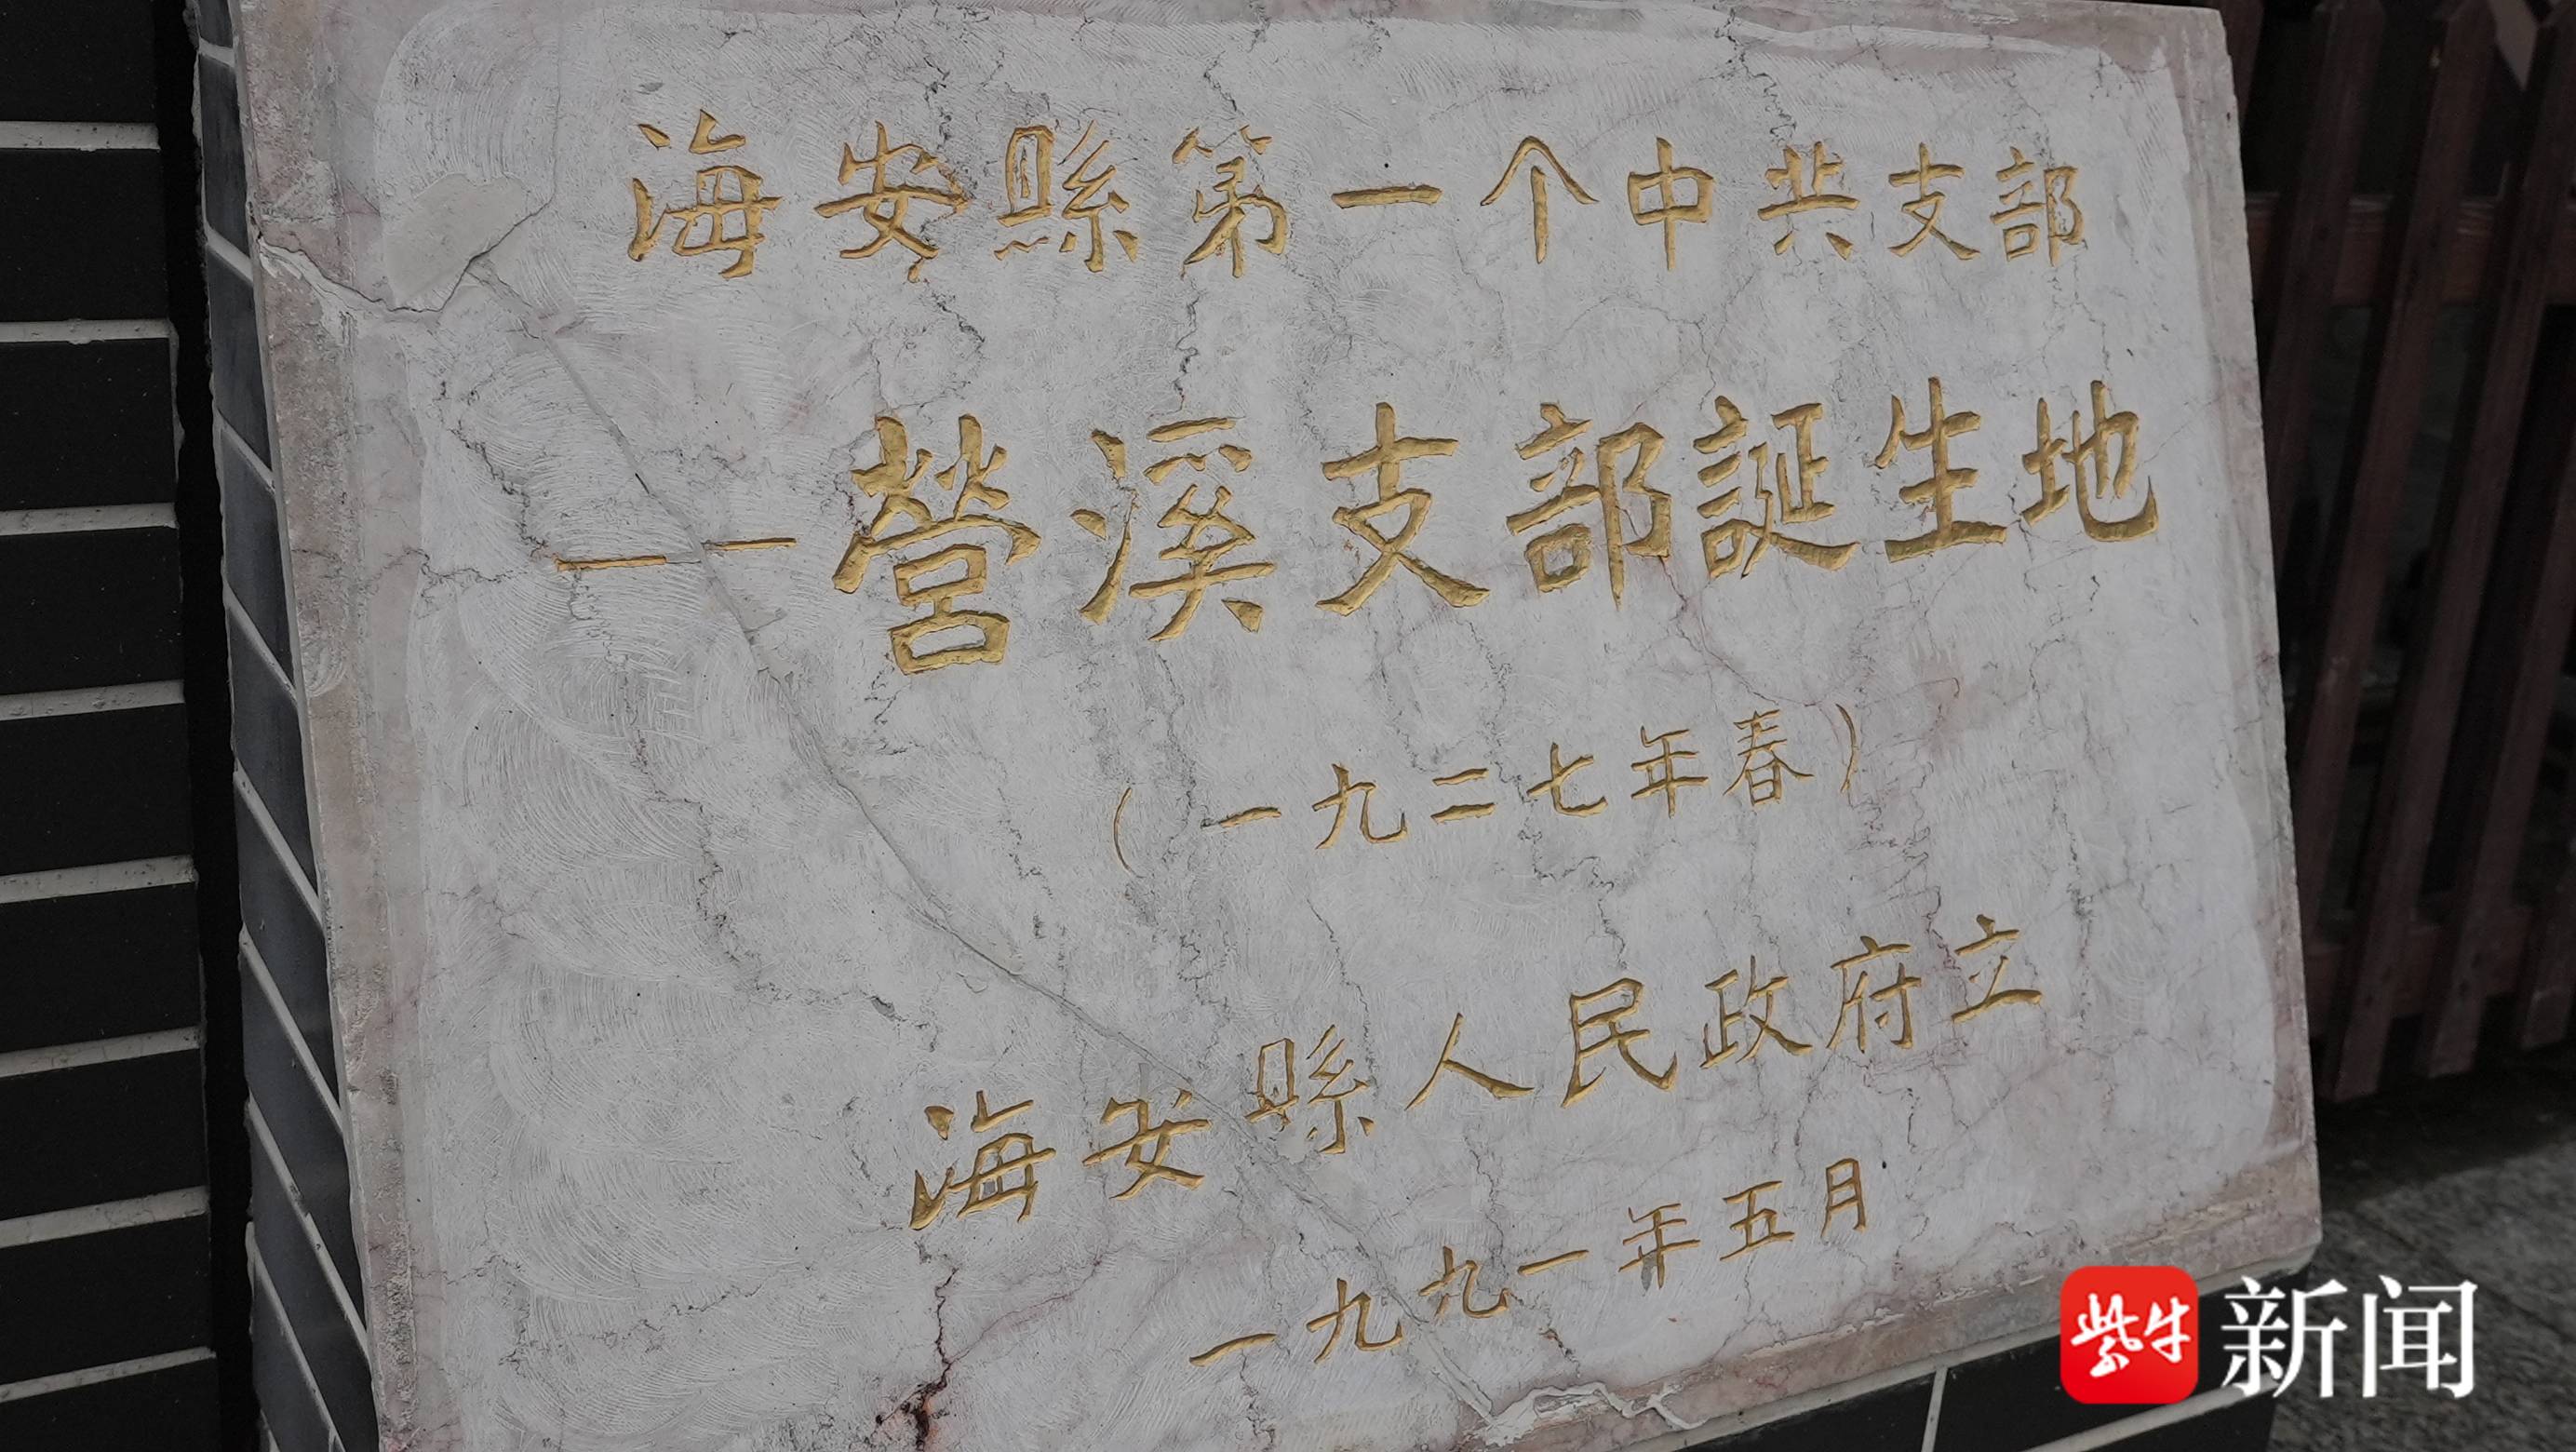 海安縣第一个中共支部
——營溪支部誕生地
（一九二七年春）
海安縣人民政府立
一九九一年五月
紫牛 新闻